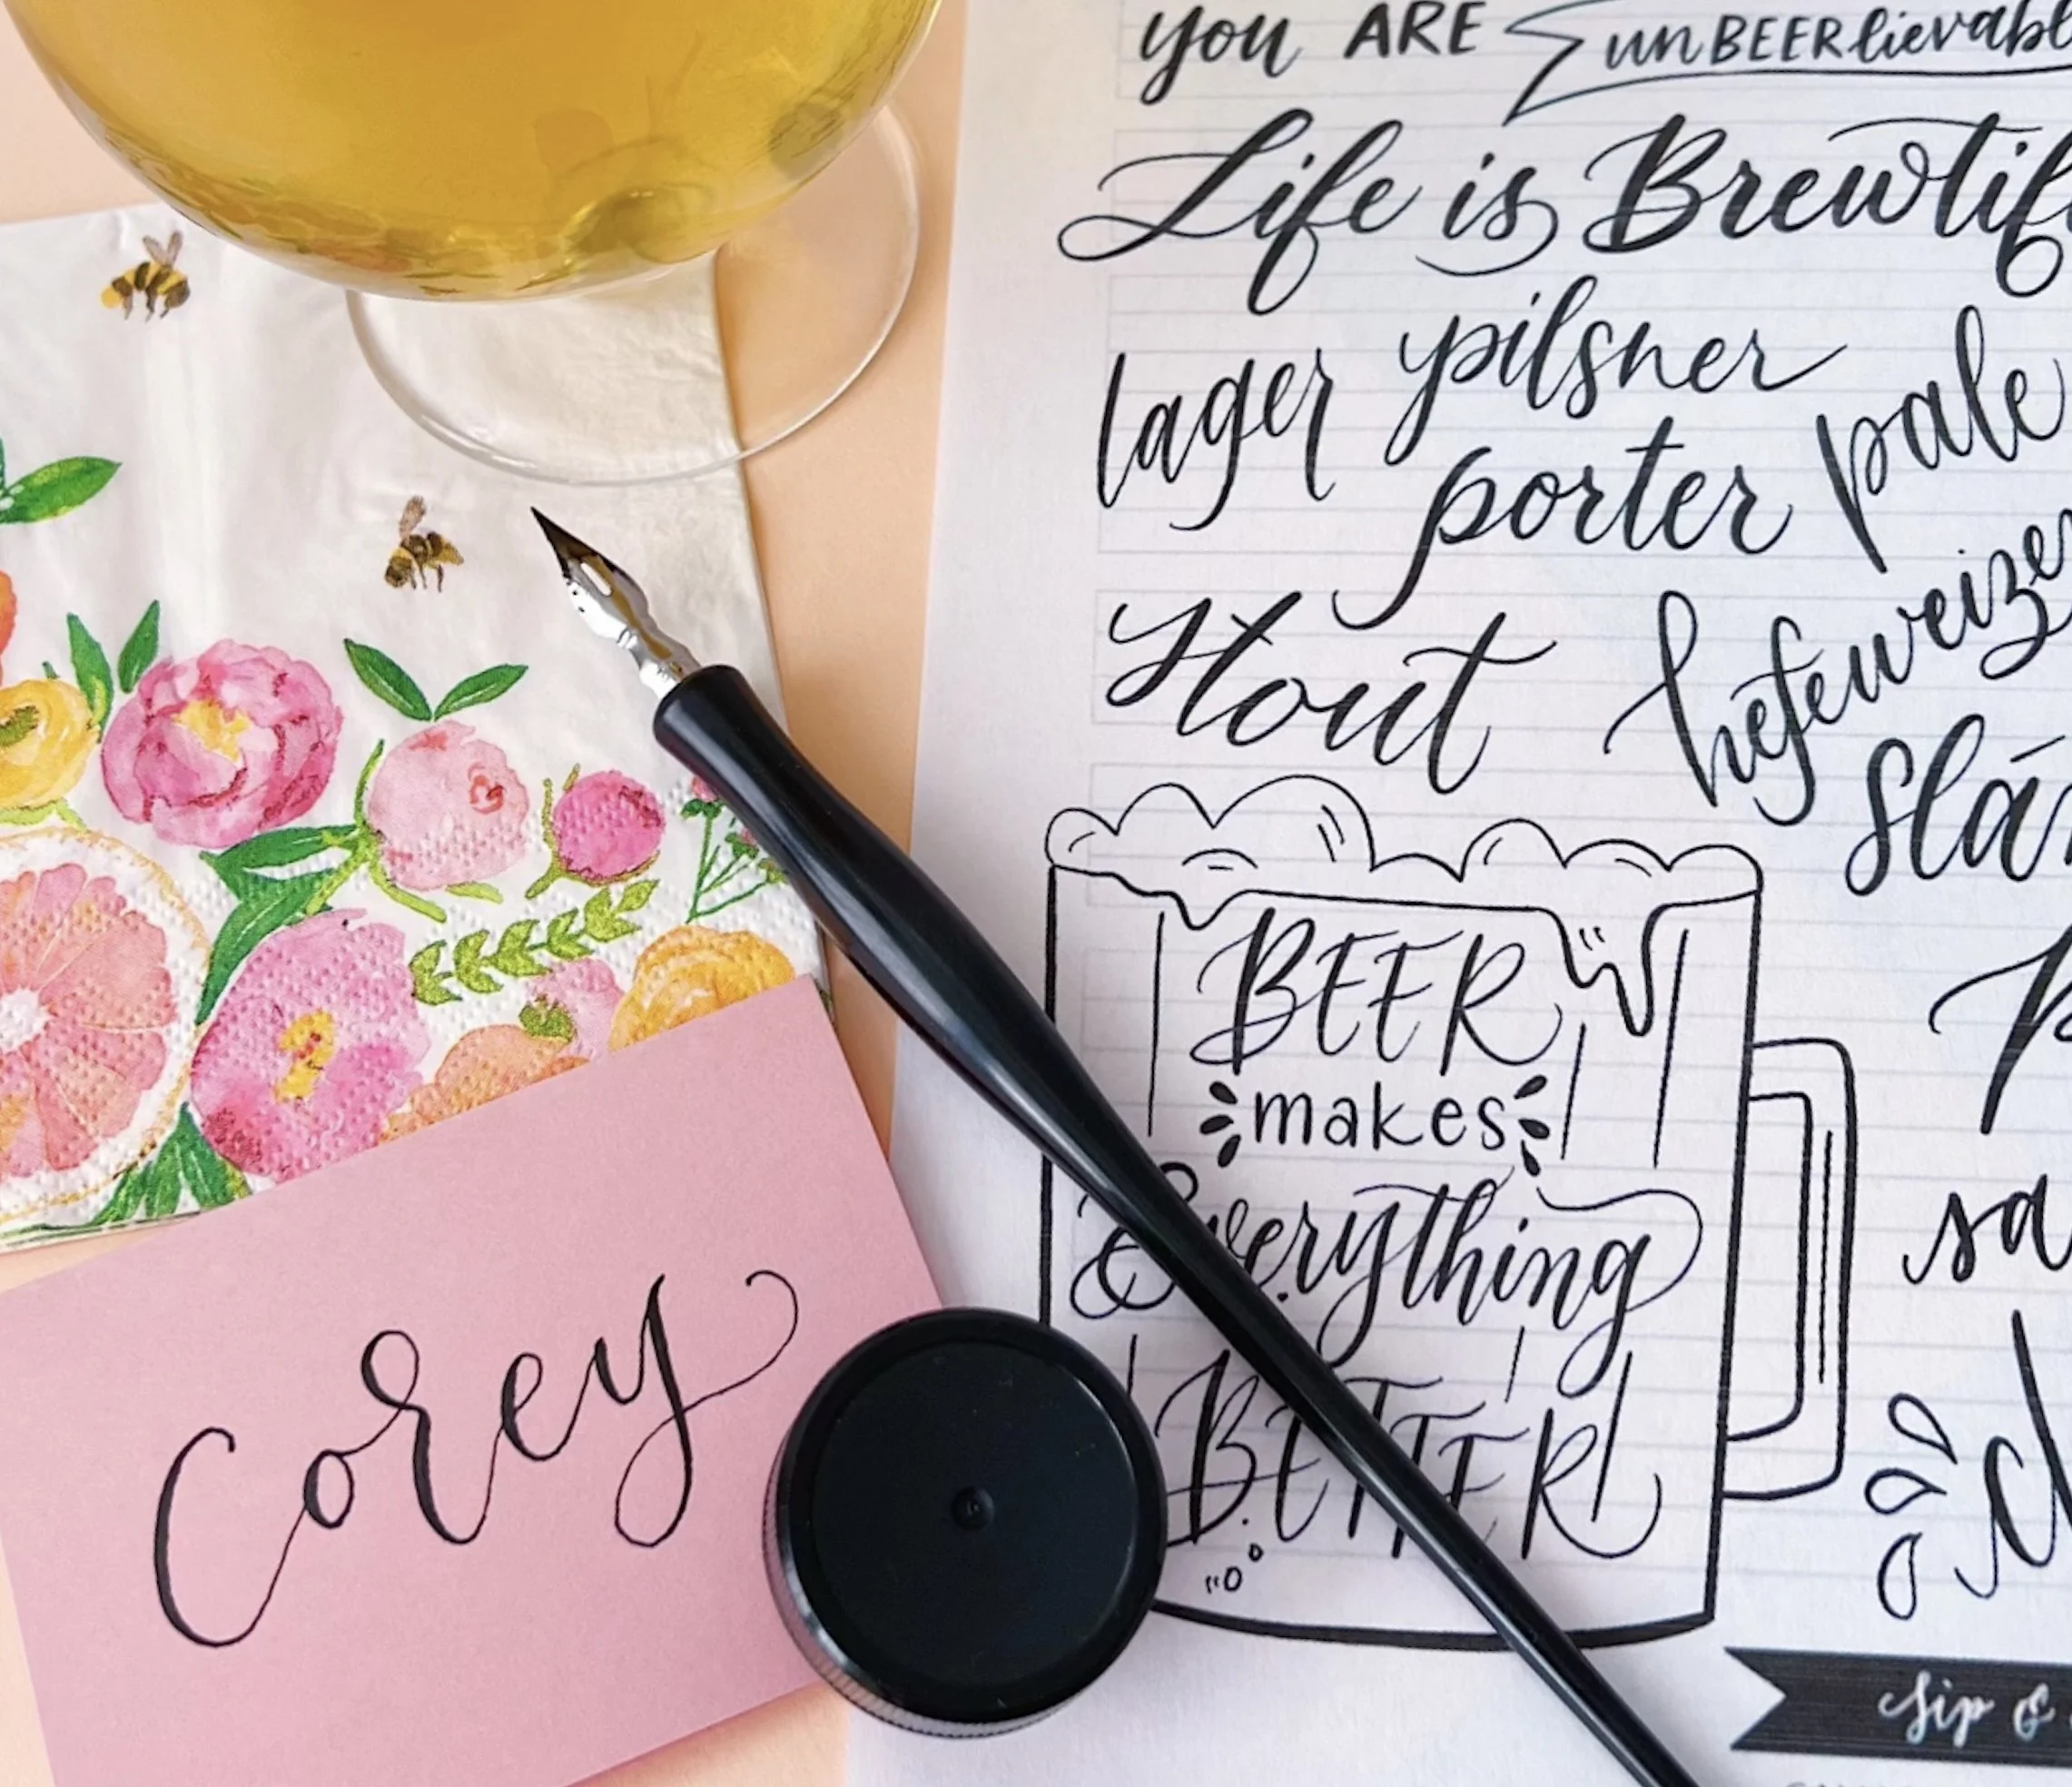 you ARE unBEERlievabl
Life is Brewtif
lager pilsner
porter pale
stout hefeweizen
Slá
BEER
makes
Everything
BETTER
sa
Sip &
Corey